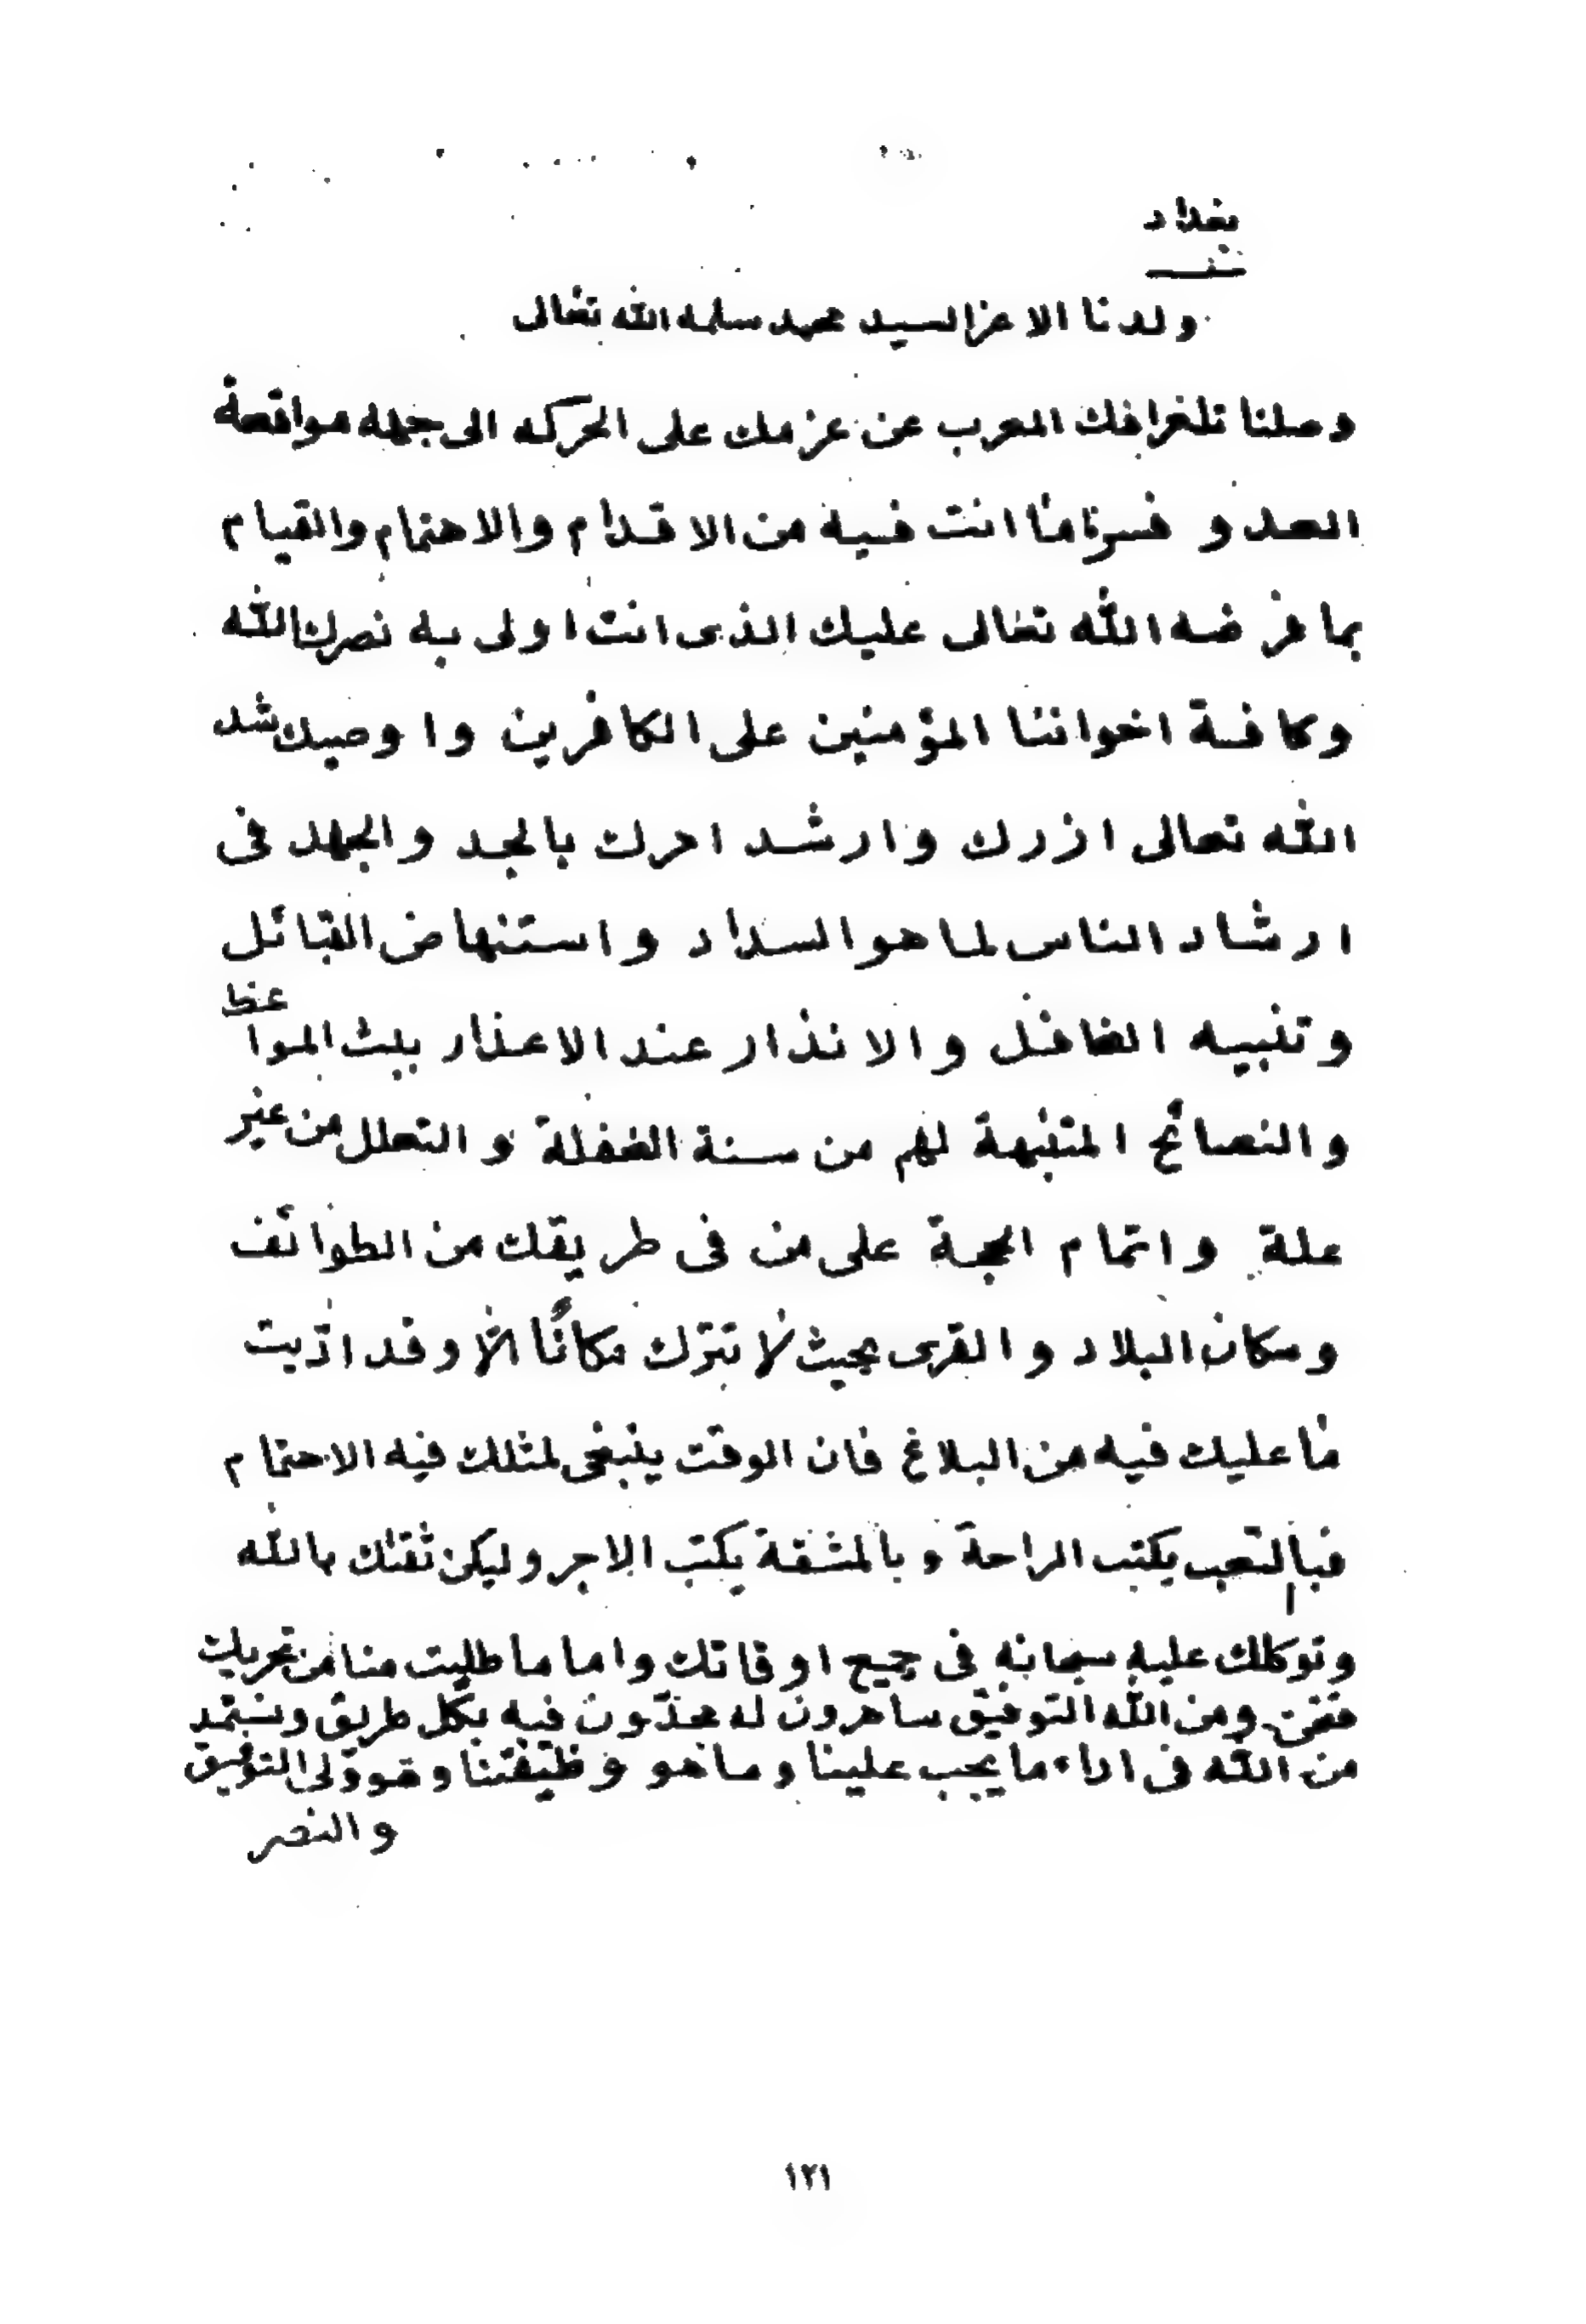 بغداد
ولدنا الاعز السيد محمد سلمه الله تعالى
وصلنا تلغرافك المعرب عن عزمك على الحركه الى جهة مواقعة
العدو فسرنا ما انت فيه من الاقدام والاهتمام والقيام
بما فرضه الله تعالى عليك الذى انت اولى به نصرك الله
وكافة اخواننا المؤمنين على الكافرين واوصيك شد
الله تعالى ازرك وارشد امرك بالجد والجهد فى
ارشاد الناس لما هو السداد واستنهاض القبائل
وتنبيه الغافل والانذار عند الاعذار ببث المواعظ
والنصائح المنبهة لهم من سنة الغفلة والتعلل من غير
علة واتمام الحجة على من فى طريقك من الطوائف
وسكان البلاد والقرى بحيث لا تترك مكانًا الّا وقد ادّيت
ما عليك فيه من البلاغ فان الوقت ينبغى لمثلك فيه الاهتمام
فبالتعب يكتب الراحة وبالمشقة يكتب الاجر وليكن ثقتك بالله
وتوكلك عليه سبحانه فى جميع اوقاتك واما ما طلبت منا من تحريك
فنحن ومن الله التوفيق ساهرون له مجدّون فيه بكل طريق ونستمد
من الله فى اداء ما يجب علينا وما هو وظيفتنا وهو ولى التوفيق
والنصر
١٢١